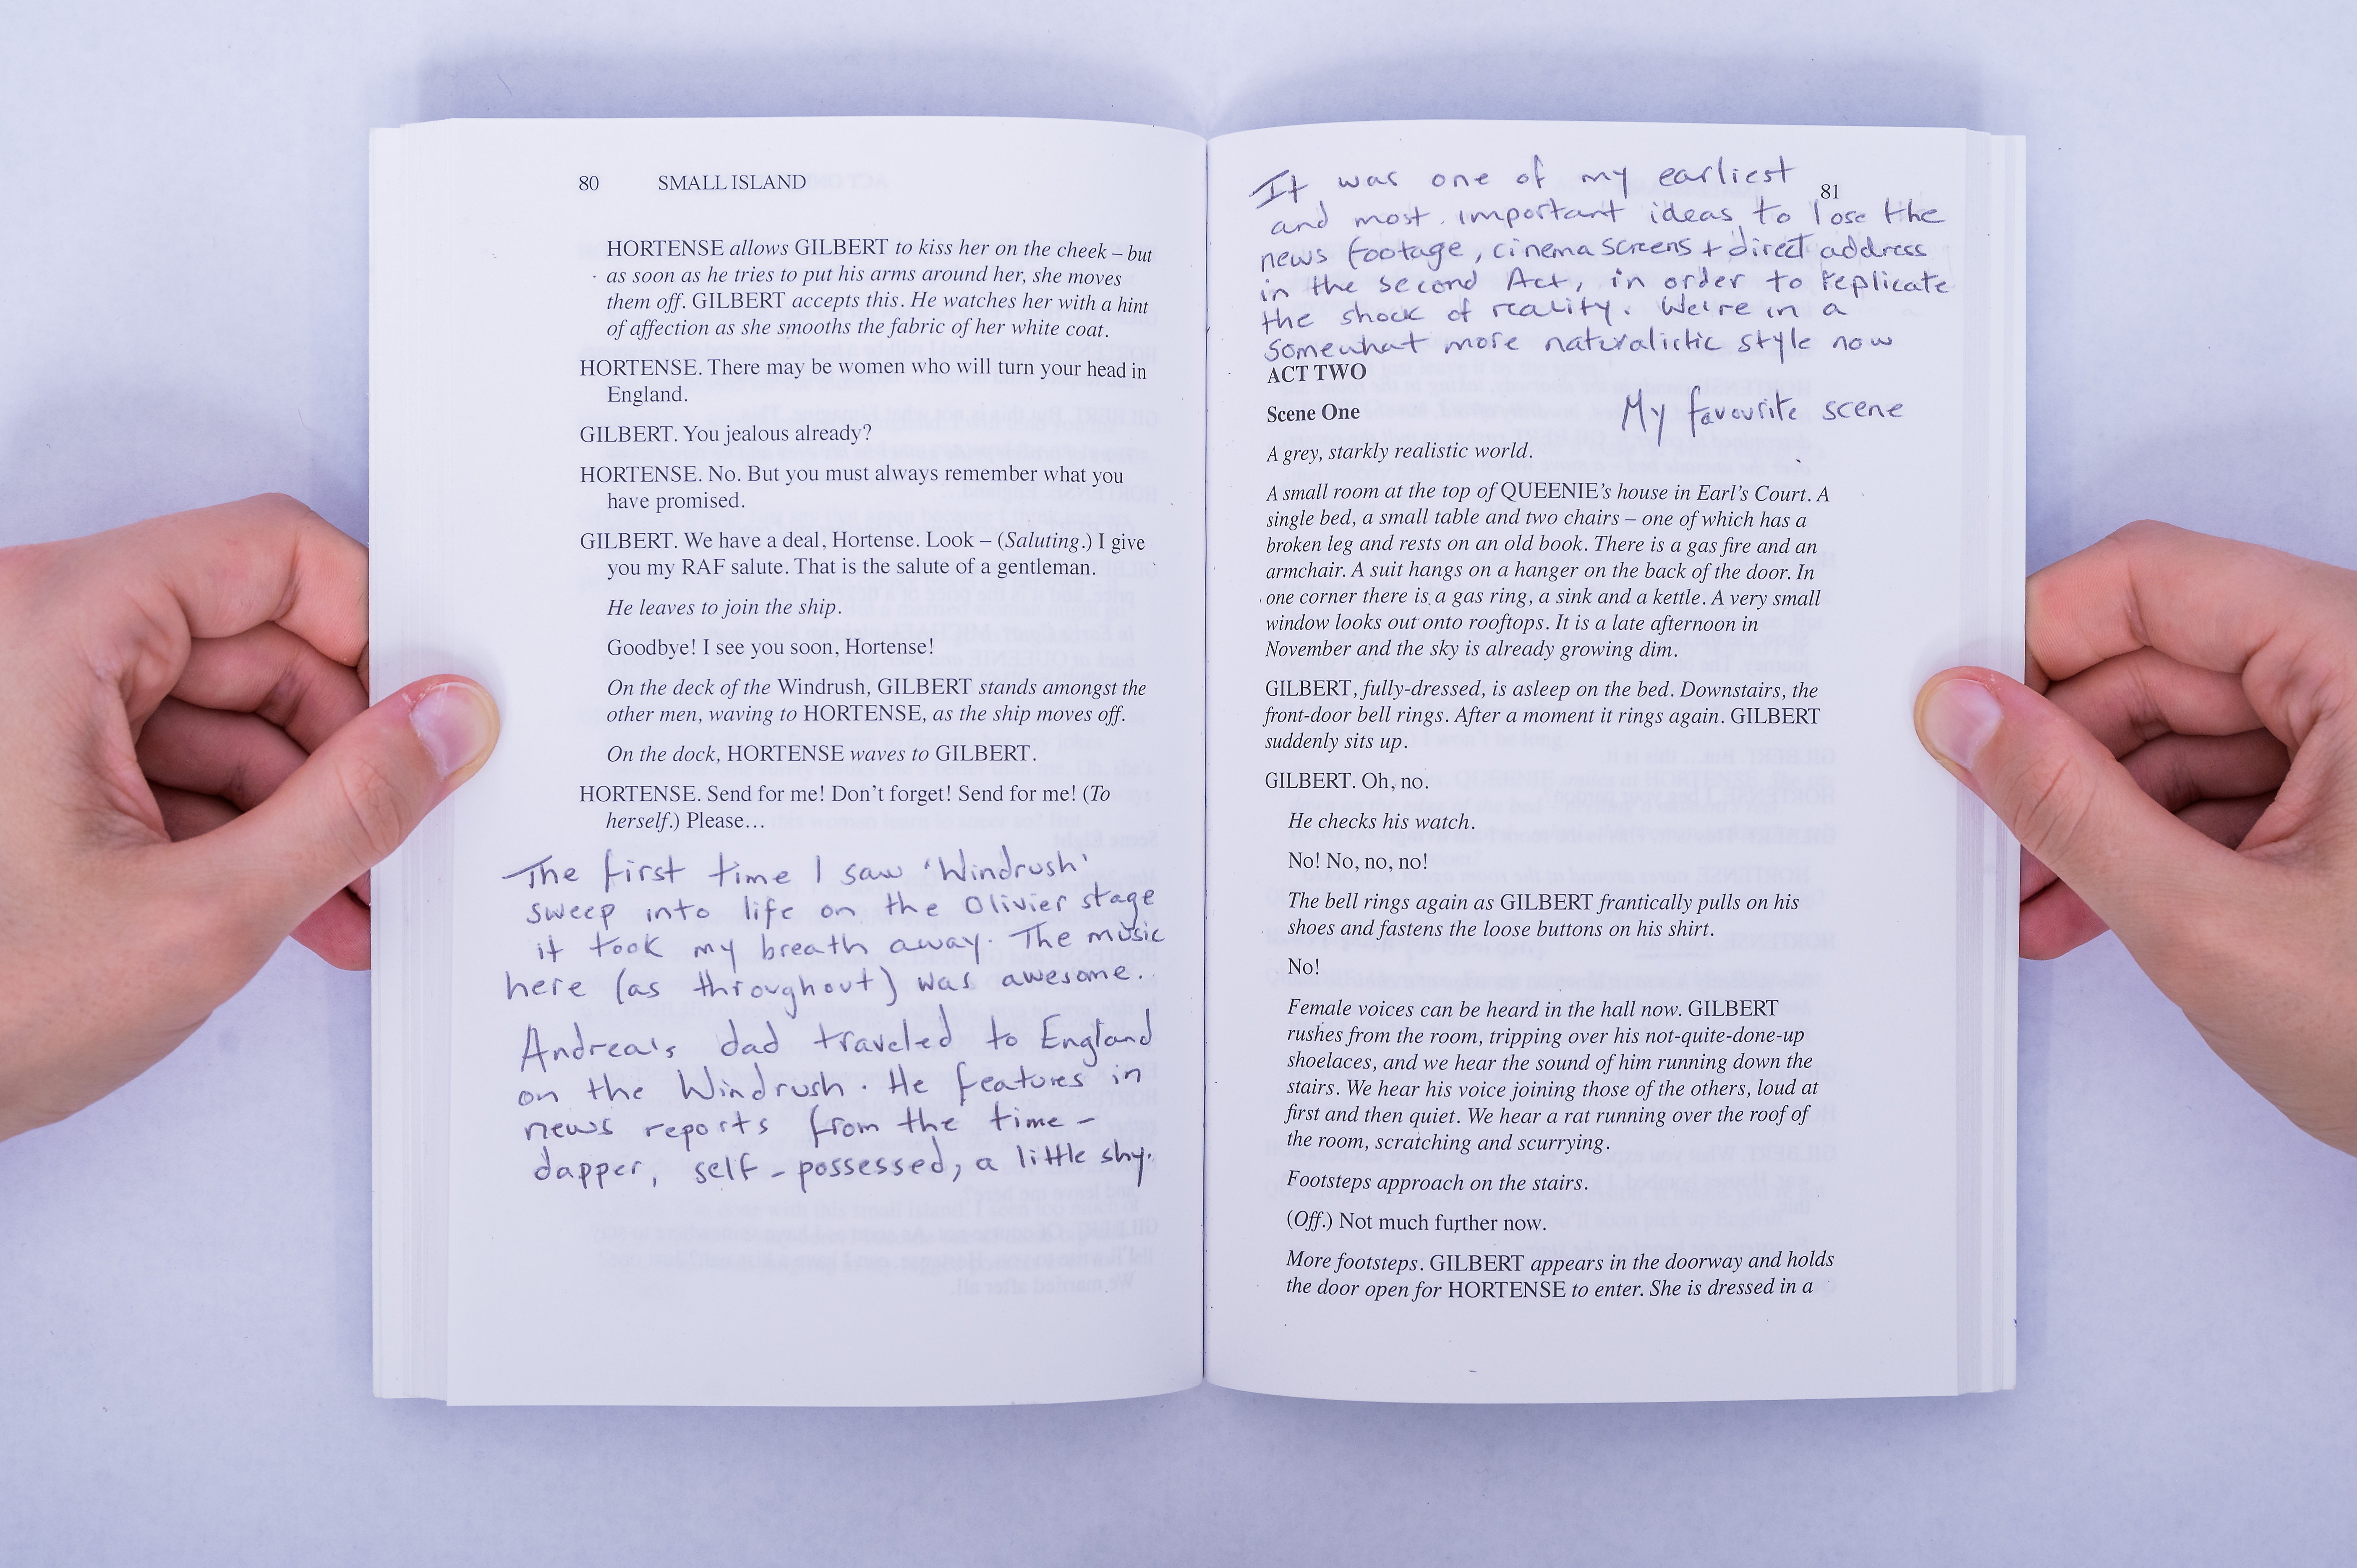 80 SMALL ISLAND
HORTENSE allows GILBERT to kiss her on the cheek – but
as soon as he tries to put his arms around her, she moves
them off. GILBERT accepts this. He watches her with a hint
of affection as she smooths the fabric of her white coat.
HORTENSE. There may be women who will turn your head in
England.
GILBERT. You jealous already?
HORTENSE. No. But you must always remember what you
have promised.
GILBERT. We have a deal, Hortense. Look – (Saluting.) I give
you my RAF salute. That is the salute of a gentleman.
He leaves to join the ship.
Goodbye! I see you soon, Hortense!
On the deck of the Windrush, GILBERT stands amongst the
other men, waving to HORTENSE, as the ship moves off.
On the dock, HORTENSE waves to GILBERT.
HORTENSE. Send for me! Don't forget! Send for me! (To
herself.) Please…
The first time I saw 'Windrush'
sweep into life on the Olivier stage
it took my breath away. The music
here (as throughout) was awesome.
Andrea's dad traveled to England
on the Windrush. He features in
news reports from the time –
dapper, self-possessed, a little shy.
It was one of my earliest
81
and most important ideas to lose the
news footage, cinema screens + direct address
in the second Act, in order to replicate
the shock of reality. We're in a
somewhat more naturalistic style now
ACT TWO
Scene One
My favourite scene
A grey, starkly realistic world.
A small room at the top of QUEENIE's house in Earl's Court. A
single bed, a small table and two chairs – one of which has a
broken leg and rests on an old book. There is a gas fire and an
armchair. A suit hangs on a hanger on the back of the door. In
one corner there is a gas ring, a sink and a kettle. A very small
window looks out onto rooftops. It is a late afternoon in
November and the sky is already growing dim.
GILBERT, fully-dressed, is asleep on the bed. Downstairs, the
front-door bell rings. After a moment it rings again. GILBERT
suddenly sits up.
GILBERT. Oh, no.
He checks his watch.
No! No, no, no!
The bell rings again as GILBERT frantically pulls on his
shoes and fastens the loose buttons on his shirt.
No!
Female voices can be heard in the hall now. GILBERT
rushes from the room, tripping over his not-quite-done-up
shoelaces, and we hear the sound of him running down the
stairs. We hear his voice joining those of the others, loud at
first and then quiet. We hear a rat running over the roof of
the room, scratching and scurrying.
Footsteps approach on the stairs.
(Off.) Not much further now.
More footsteps. GILBERT appears in the doorway and holds
the door open for HORTENSE to enter. She is dressed in a